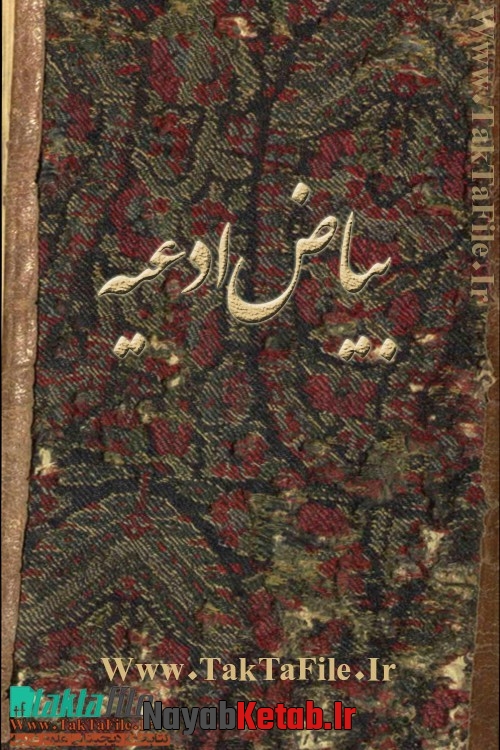 www.TakTaFile.Ir
بیاض ادعیه
Www.TakTaFile.Ir
taktafile
Www.TakTaFile.Ir
NayabKetab.Ir